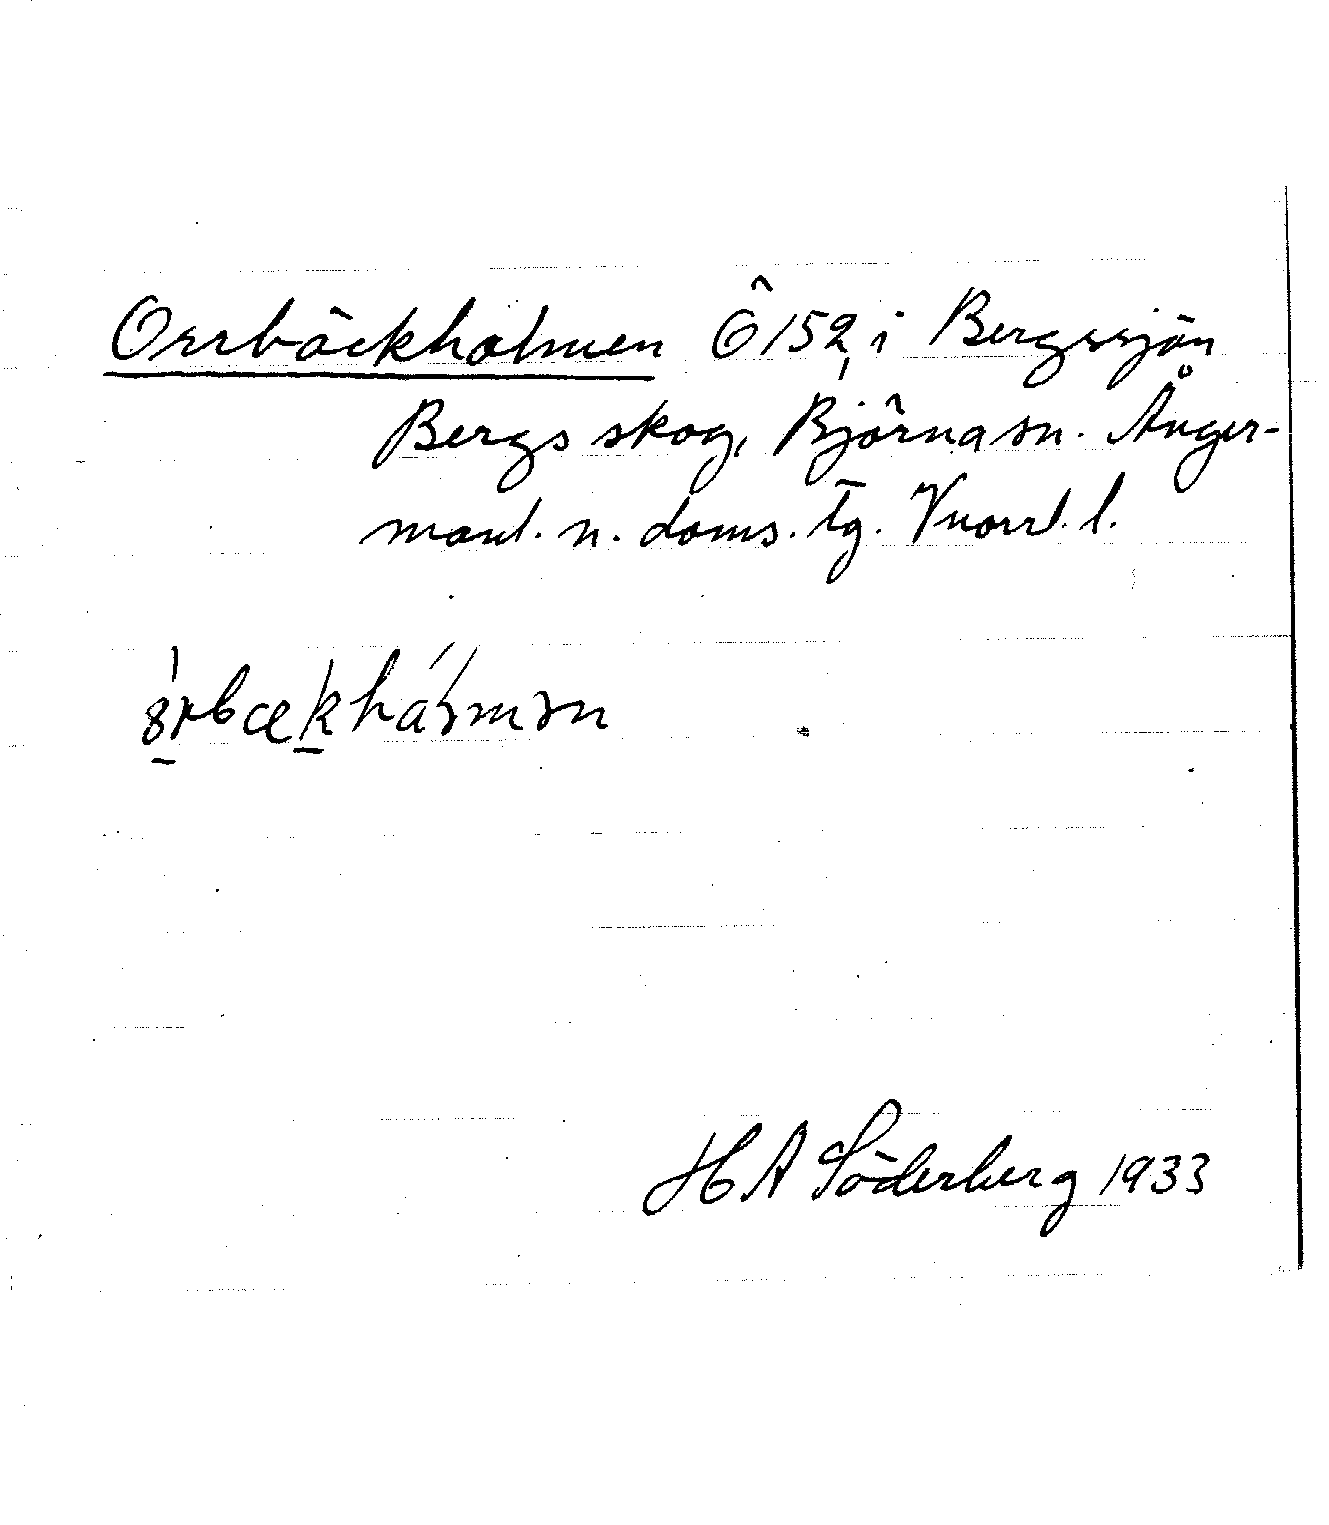 Orrbäckholmen Ö 152, i Bergssjön
Bergs skog, Björna sn. Ånger-
manl. n. doms. tg. Vnorrl. l.
H A Söderberg 1933